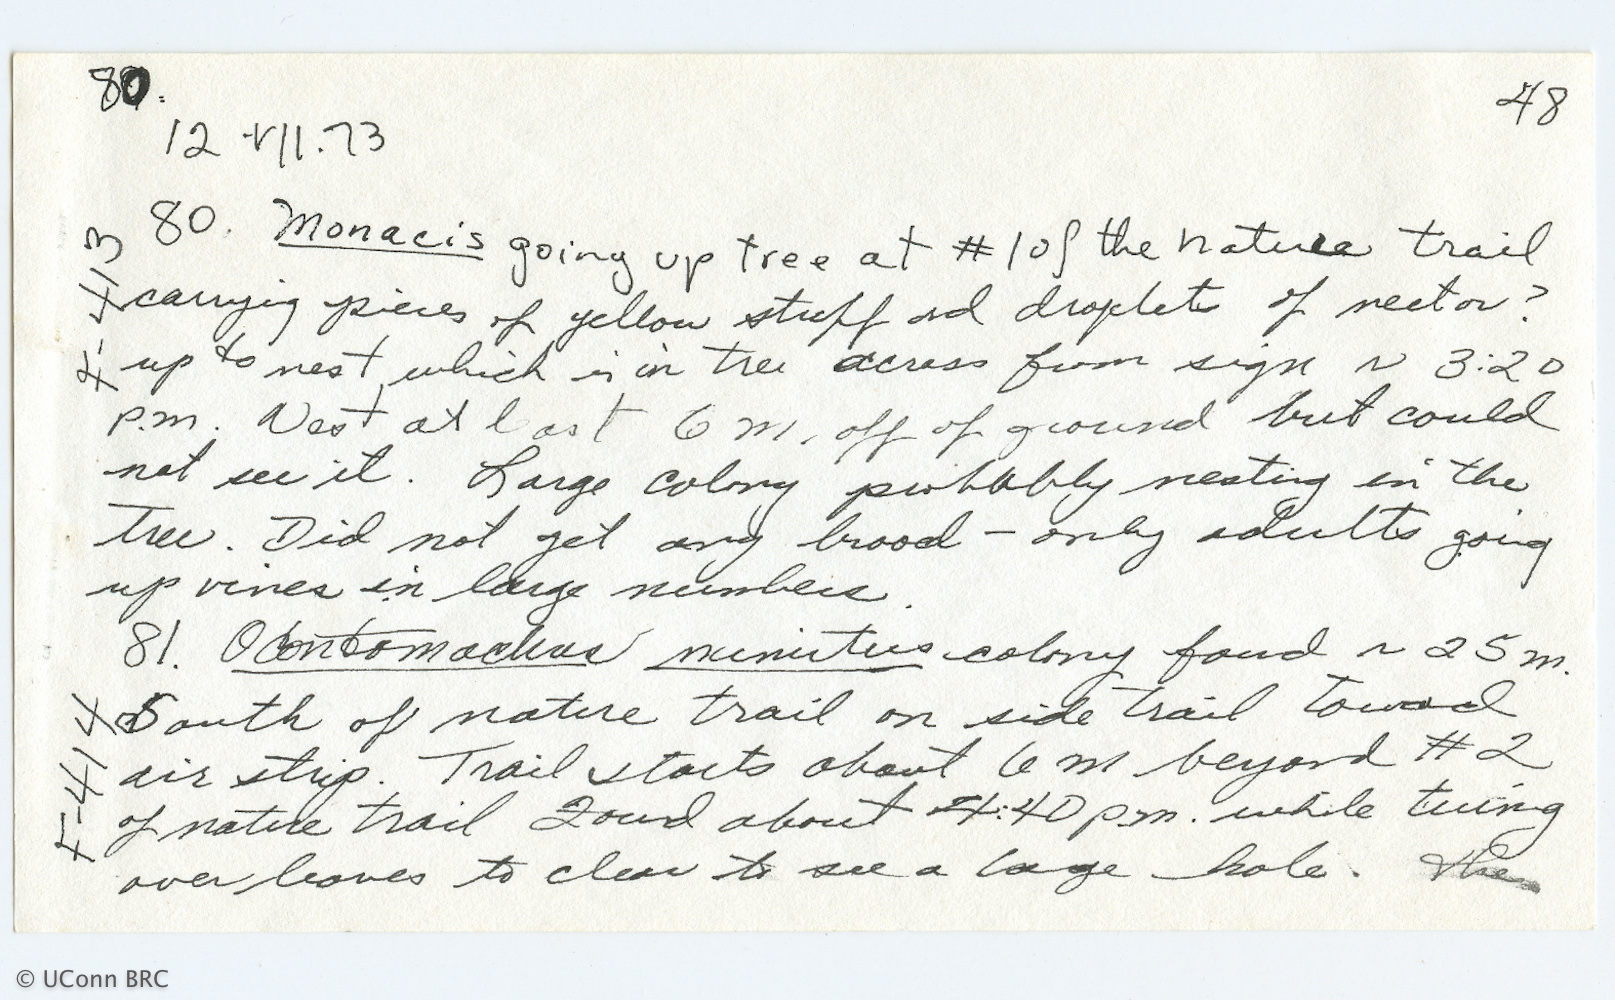 80.
48
12 VII.73
80. Monacis going up tree at #1 of the nature trail
carrying pieces of yellow stuff and droplets of nectar?
up to nest which is in tree across from sign ~ 3:20
p.m. Nest at least 6 m. off of ground but could
not see it. Large colony probably nesting in the
tree. Did not get any brood - only adults going
up vines in large numbers.
81. Odontomachus minutus colony found ~ 25 m.
South of nature trail on side trail toward
air strip. Trail starts about 6 m beyond #2
of nature trail Found about 4:40 p.m. while turing
over leaves to clear to see a large hole. The
F-413
F-414
© UConn BRC